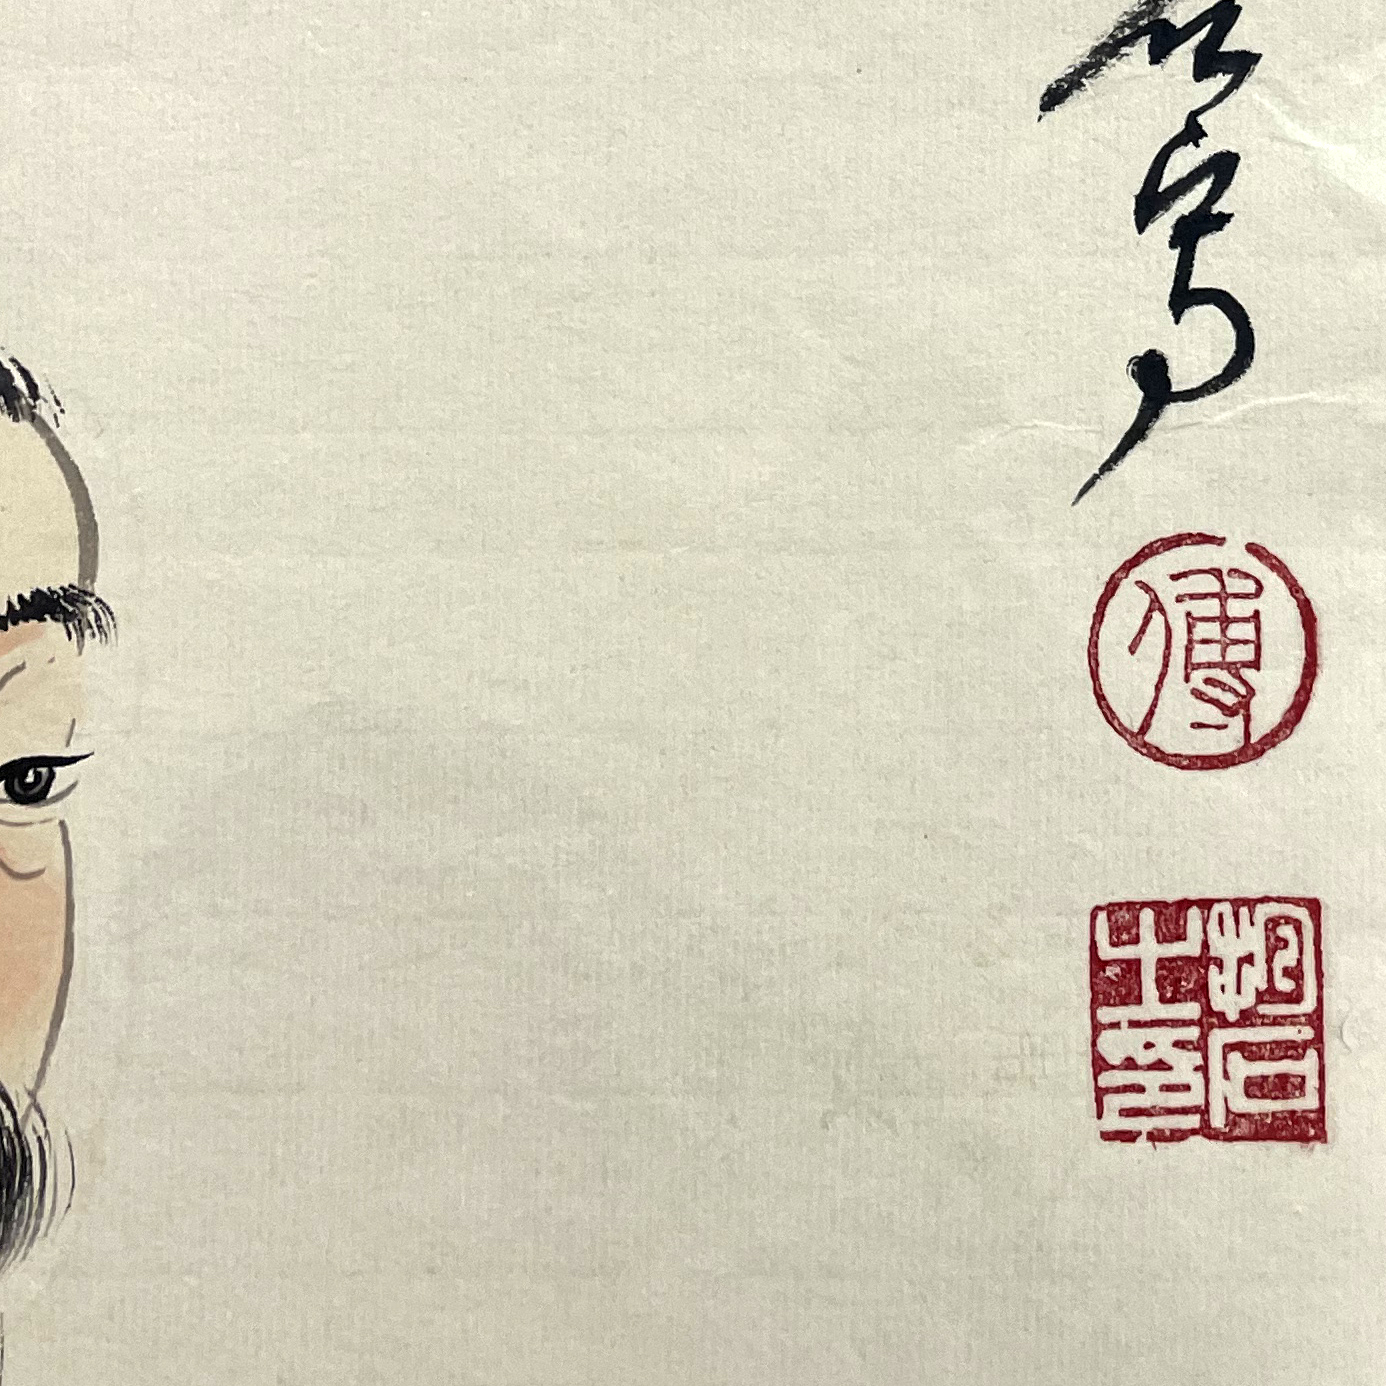 寫
傅
抱石
之印